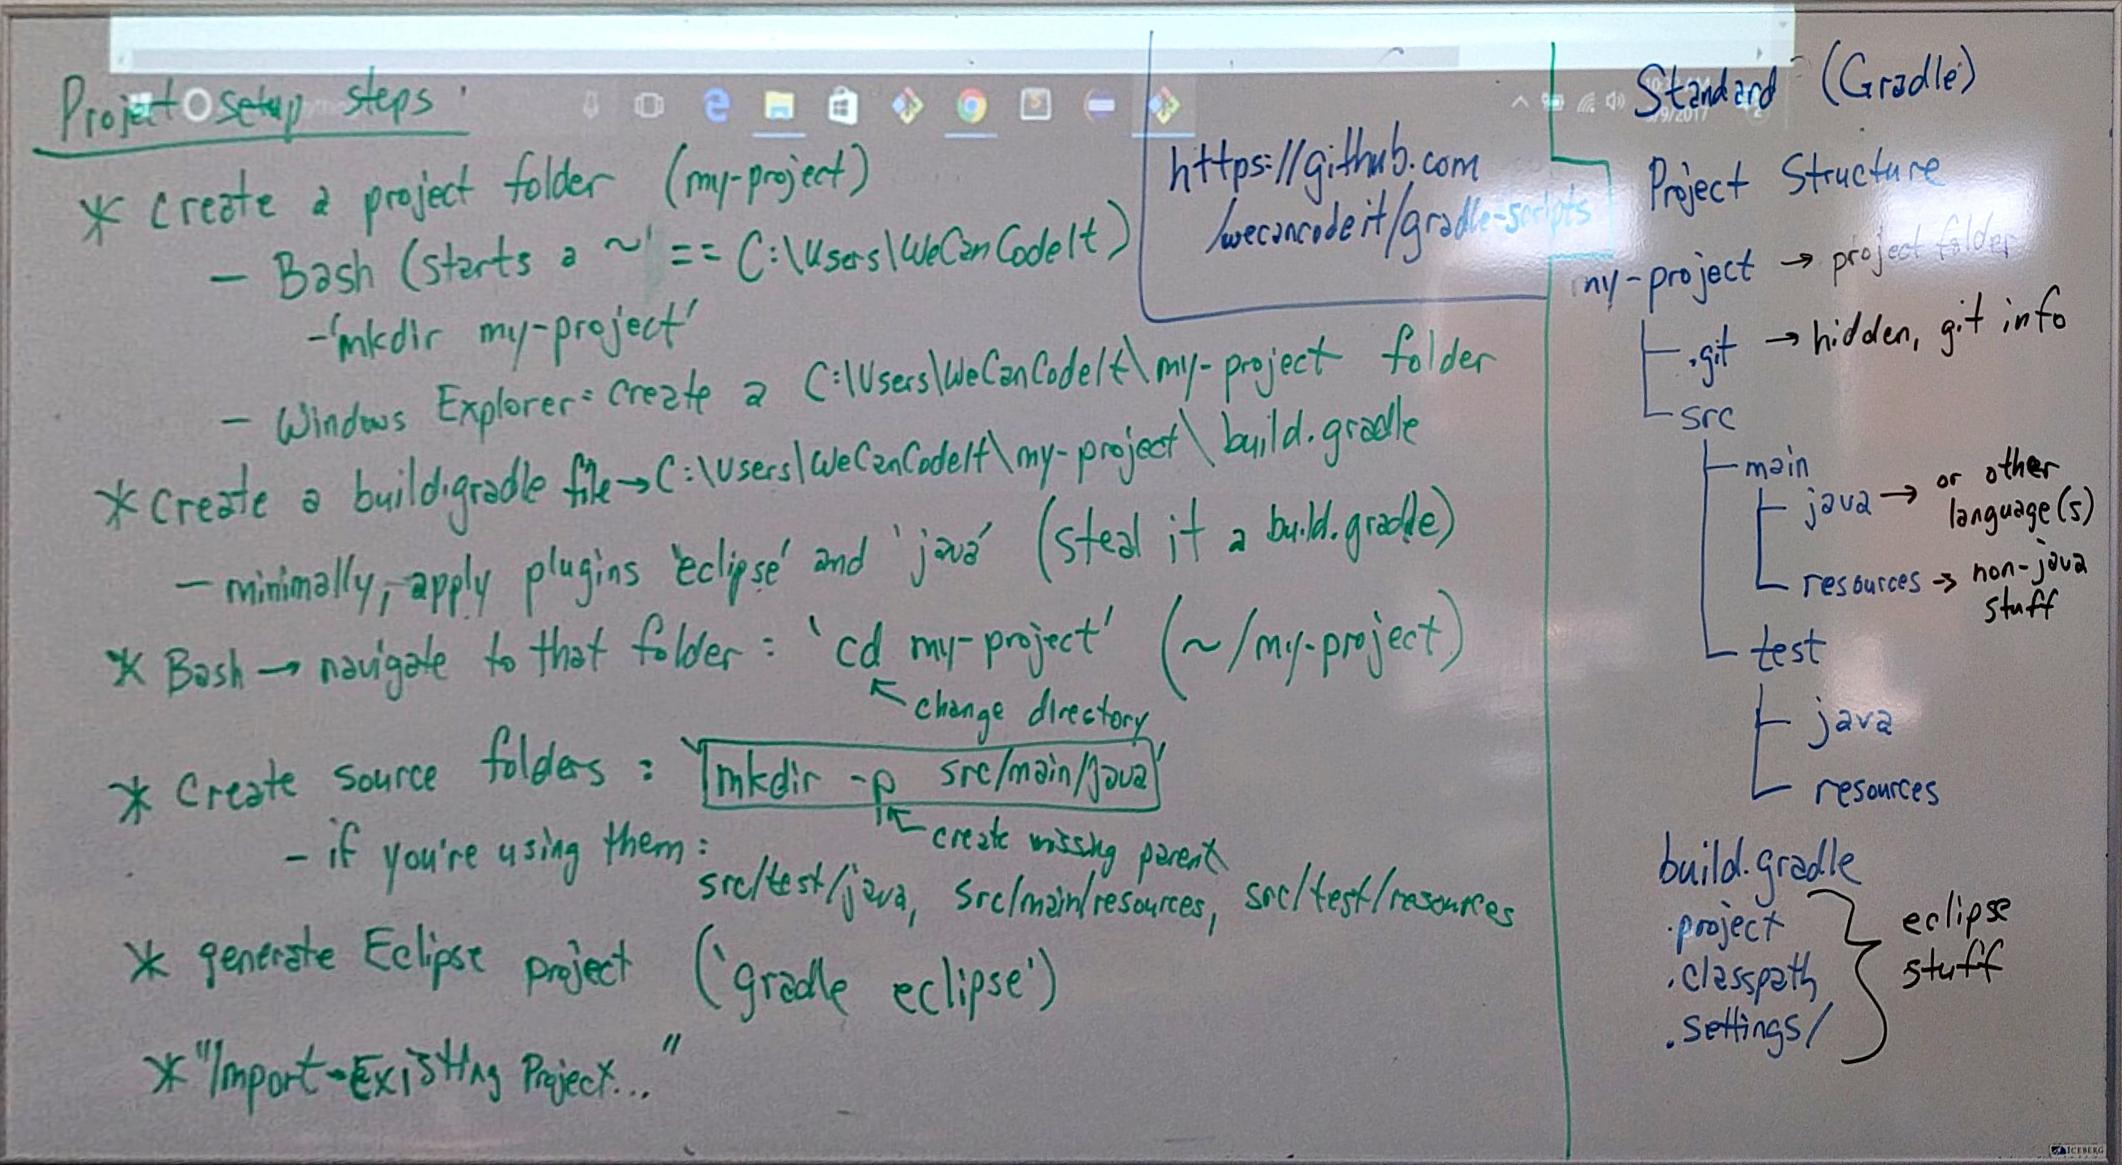 Project setup steps
* create a project folder (my-project)
- Bash (starts a ~' == C:\Users\WeCanCodeIt)
- 'mkdir my-project'
- Windows Explorer: create a C:\Users\WeCanCodeIt\my-project folder
* create a build.gradle file → C:\Users\WeCanCodeIt\my-project\build.gradle
- minimally, apply plugins 'eclipse' and 'java' (steal it a build.gradle)
* Bash → navigate to that folder: 'cd my-project' (~/my-project)
change directory
* Create source folders: 'mkdir -p src/main/java'
create missing parent
- if you're using them:
src/test/java, src/main/resources, src/test/resources
* generate Eclipse project ('gradle eclipse')
* "Import-Existing Project..."
https://github.com
/wecancodeit/gradle-scripts
Standard (Gradle)
Project Structure
my-project → project folder
.git → hidden, git info
src
main
java → or other
language(s)
resources → non-java
stuff
test
java
resources
build.gradle
.project
.classpath
.settings/
eclipse
stuff
ICEBERG